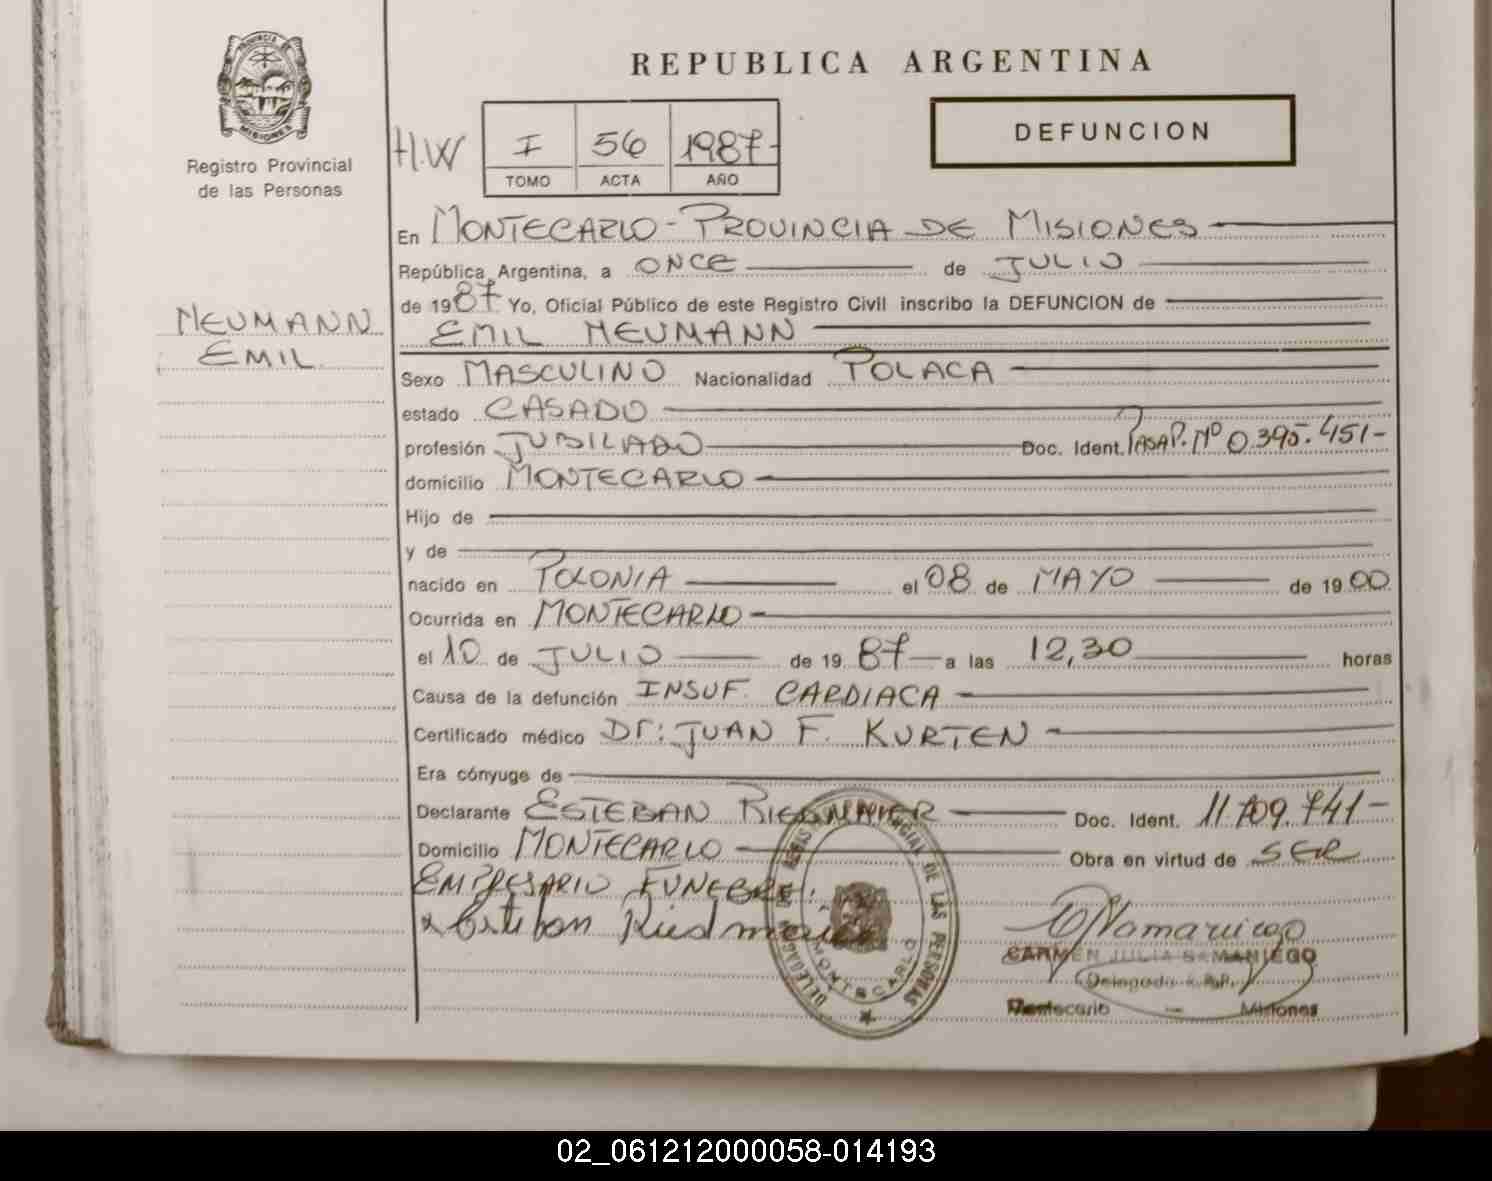 PROVINCIA DE
MISIONES
Registro Provincial
de las Personas
REPUBLICA ARGENTINA
DEFUNCION
H.W
I 56 1987-
TOMO ACTA AÑO
NEUMANN
EMIL
En MONTECARLO - PROVINCIA DE MISIONES
República Argentina, a ONCE de JULIO
de 1987 Yo, Oficial Público de este Registro Civil inscribo la DEFUNCION de
EMIL NEUMANN
Sexo MASCULINO Nacionalidad POLACA
estado CASADO
profesión JUBILADO Doc. Ident. PASAP. Nº 0.395.451-
domicilio MONTECARLO
Hijo de
y de
nacido en POLONIA el 08 de MAYO de 1900
Ocurrida en MONTECARLO
el 10 de JULIO de 1987 a las 12,30 horas
Causa de la defunción INSUF. CARDIACA
Certificado médico Dr: JUAN F. KURTEN
Era cónyuge de
Declarante ESTEBAN RIEDMAIER Doc. Ident. 11.709.741-
Domicilio MONTECARLO Obra en virtud de SER
EMPRESARIO FUNEBRE.
x Esteban Riedmaier
DELEGACION DEL REGISTRO PROVINCIAL DE LAS PERSONAS
MONTECARLO
CARMEN JULIA SAMANIEGO
Delegada R.P.P.
Montecarlo — Misiones
02_061212000058-014193